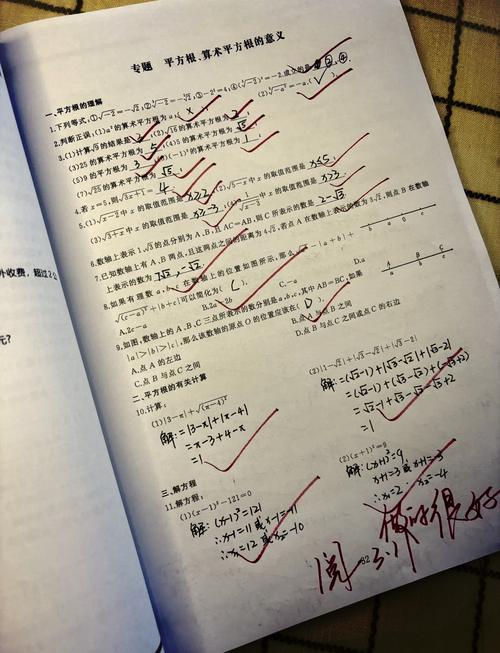 专题 平方根、算术平方根的意义
一、平方根的理解
1.下列等式:①√-2=-√2,②∛-2=-∛2,③-2²=4,④(∛-2)³=-2.成立的是 ②,④.
2.判断正误:(1)a²的算术平方根为a,( × ) (2)∛-a³=-a.( √ )
3.(1)计算 的结果是 (2)√16的算术平方根为 2
(3)25的算术平方根为 5 (4)5的算术平方根为 √5
(5)9的平方根为 (6)(-1)²的算术平方根为 1
(7)√25的算术平方根为 √5
4.若x=5,则√3x+1= 4
5.(1) 中x的取值范围是 x≥2 (2)√5-x中x的取值范围是 x≤5
(3)√3+x中x的取值范围是 x≥-3 (4) 中x的取值范围是 x>3
6.数轴上表示1,√3的点分别为A,B,且AC=AB,则C所表示的数是 2-√3
7.已知数轴上有A,B两点,且这两点之间的距离为4√2,若点A在数轴上表示的数为3√2,则点B在数轴
上表示的数为 7√2,-√2
8.如果有理数a,b,c在数轴上的位置如图所示,那么
√(c-a)²+|b+c|可以简化为( C )
A.2c-a B.2a-2b C.-a D.a
9.如图,数轴上的A,B,C三点所表示的数分别是a,b,c,其中AB=BC,如果
|a|>|b|>|c|,那么该数轴的原点O的位置应该在( D )
A.点A的左边 B.点A与点B之间
C.点B与点C之间 D.点B与点C之间或点C的右边
A B C
a b c
二、平方根的有关计算
10.计算:
(1)|3-π|+√(π-4)²
解:=|3-π|+|π-4|
=π-3+4-π
=1
(2)|1-√2|+|√3-√2|+|√3-2|
解:=(√2-1)+|√3-√2|+|√3-2|
=(√2-1)+(√3-√2)+(-√3+2)
=√2-1+√3-√2-√3+2
=1
三、解方程
11.解方程:
(1)(x-1)²-121=0
解:(x-1)²=121
∴x-1=11 或 x-1=-11
∴x₁=12 或 x₂=-10
(2)(x+1)²=9
解:(x+1)²=9
x+1=3 或 x+1=-3
∴x₁=2 x₂=-4
很好
阅
3.11
外收费,超过2公
元?